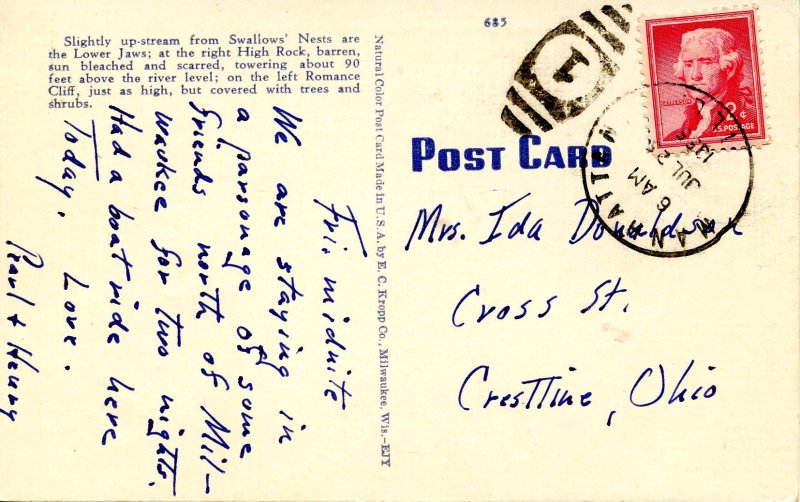 Slightly up-stream from Swallows' Nests are
the Lower Jaws; at the right High Rock, barren,
sun bleached and scarred, towering about 90
feet above the river level; on the left Romance
Cliff, just as high, but covered with trees and
shrubs.
Fri. midnite
We are staying in
a parsonage of some
friends north of Mil-
waukee for two nights.
Had a boat ride here
Today. Love.
Pearl + Henny
Natural Color Post Card Made in U. S. A. by E. C. Kropp Co., Milwaukee, Wis.-EJY
685
1
JEFFERSON
2¢
U.S. POSTAGE
MANHATTAN
ILL.
6 AM
JUL 2
POST CARD
Mrs. Ida Donaldson
Cross St.
Crestline, Ohio